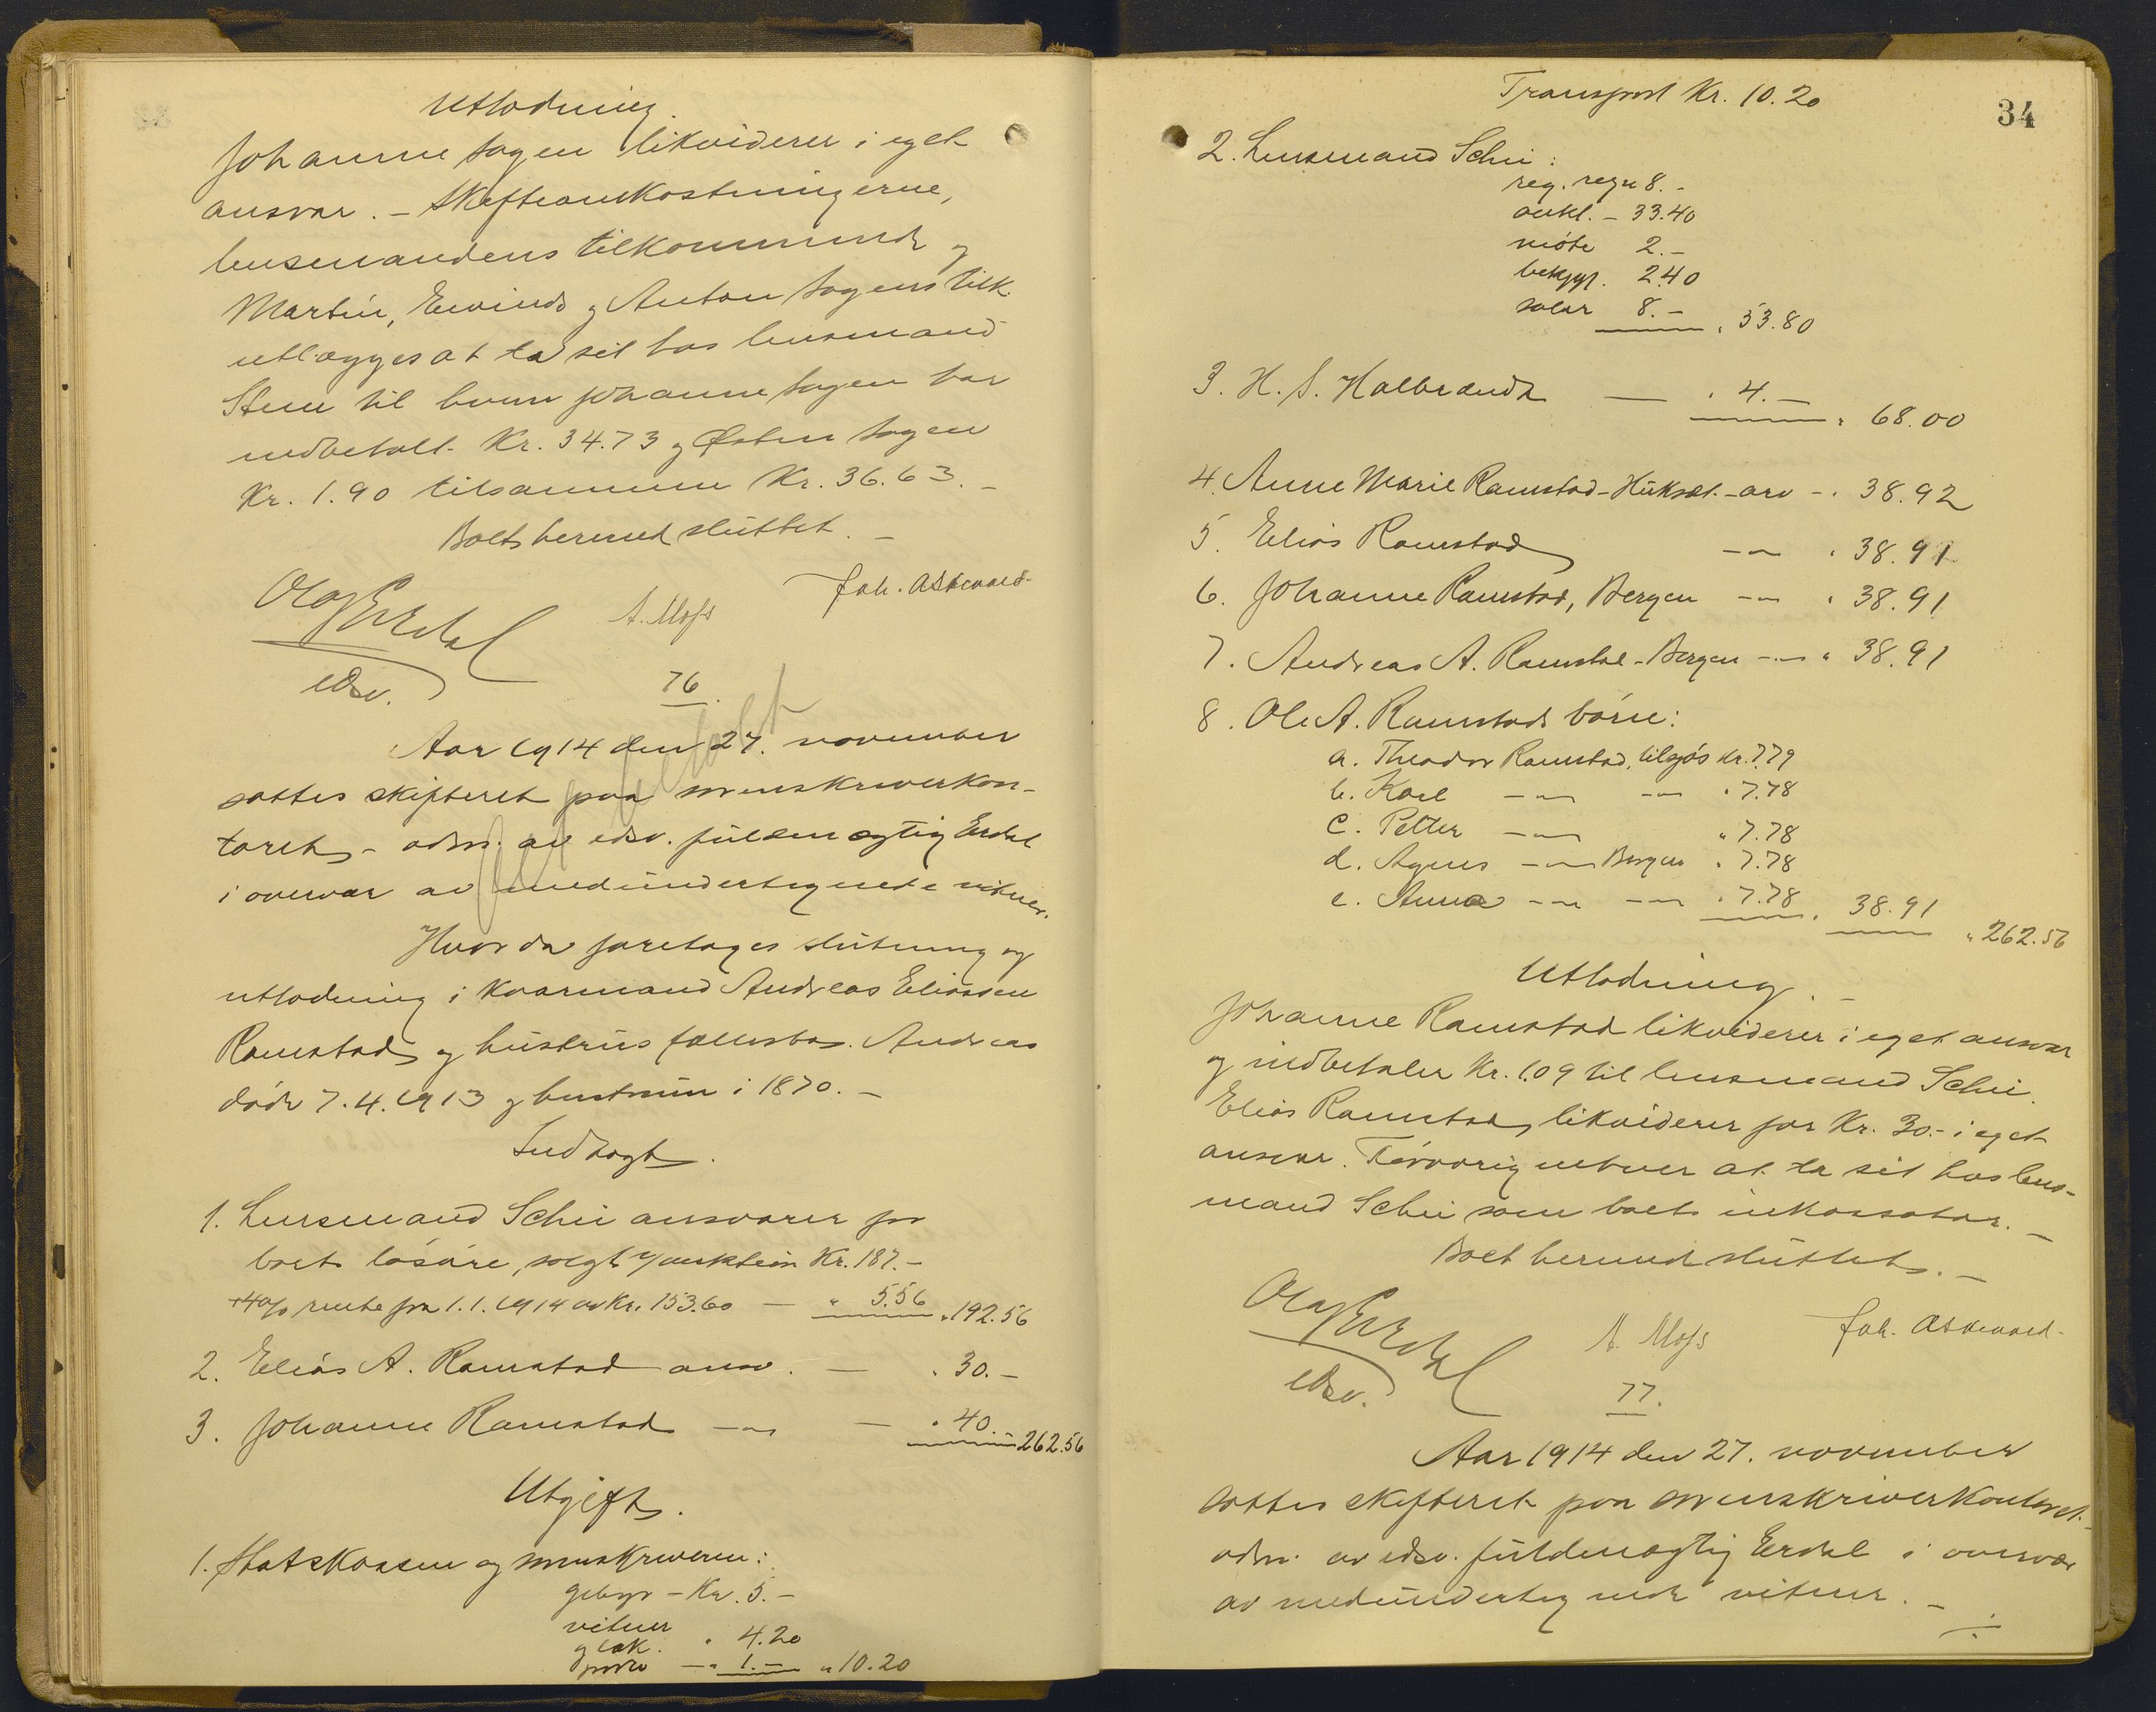 Utlodning.
Johanne Hagen likviderer i eget
ansvar. - Skifteomkostningerne,
lensmandens tilkommende og
Martin, Eivinds og Anton Hagens tilk.
utlægges at ta sit hos lensmand
til hvem Johanne Hagen har
indbetalt Kr. 34.73 og Østen Hagen
Kr. 1.90 tilsammen Kr. 36.63. -
Boets hermed sluttet. -
Olaf Erdal A. Moss Joh. Askevold
edsv.
76.
Aar 1914 den 27. november
sattes skifteret paa sorenskriverkon-
toret - adm. av edsv. fuldmægtig Erdal
i overvær av medundertegnede vitner.
Hvor da foretages slutning og
utlodning i kaarmand Andreas Eliassen
Ramstad og hustrus fællesbo. Andreas
døde 7.4.1913 og hustruen i 1870. -
Indtægt.
1. Lensmand Schei ansvarer for
boets løsøre, solgt v/auktion Kr. 187.-
+4% rente fra 1.1.1914 av Kr. 153.60 - " 5.56 " 192.56
2. Elias A. Ramstad ansv. - " 30.-
3. Johanne Ramstad -"- - " 40.- 262.56
Utgift.
1. Statskassen og sorenskriveren:
gebyr - Kr. 5.-
vitner
og lak. " 4.20
porto - " 1.- " 10.20
34
Transport Kr. 10.20
2. Lensmand Schei:
reg. regn 8.-
aukt. - 33.40
møte 2.-
bekjgj. 2.40
salær 8.- " 53.80
3. H. S. Halbrendt - " 4.- " 68.00
4. Anne Marie Ramstad - - arv - " 38.92
5. Elias Ramstad -"- " 38.91
6. Johanne Ramstad, Bergen -"- " 38.91
7. Andreas A. Ramstad - Bergen -"- " 38.91
8. Ole A. Ramstads børn:
a. Theodor Ramstad, tilsjøs Kr. 7.79
b. Karl -"- -"- " 7.78
c. Petter -"- " 7.78
d. Agnes -"- Bergen " 7.78
e. Anna -"- -"- " 7.78 " 38.91
" 262.56
Utlodning. -
Johanne Ramstad likviderer i eget ansvar
og indbetaler Kr. 1.09 til lensmand Schei.
Elias Ramstad likviderer for Kr. 30.- i eget
ansvar. Forøvrig enhver at ta sit hos lens-
mand Schei som boets inkassator. -
Boet hermed sluttet. -
Olaf Erdal A. Moss Joh. Askevold
edsv.
77.
Aar 1914 den 27. november
sattes skifteret paa sorenskriverkontoret -
adm. av edsv. fuldmægtig Erdal i overvær
av medundertegnede vitner. -